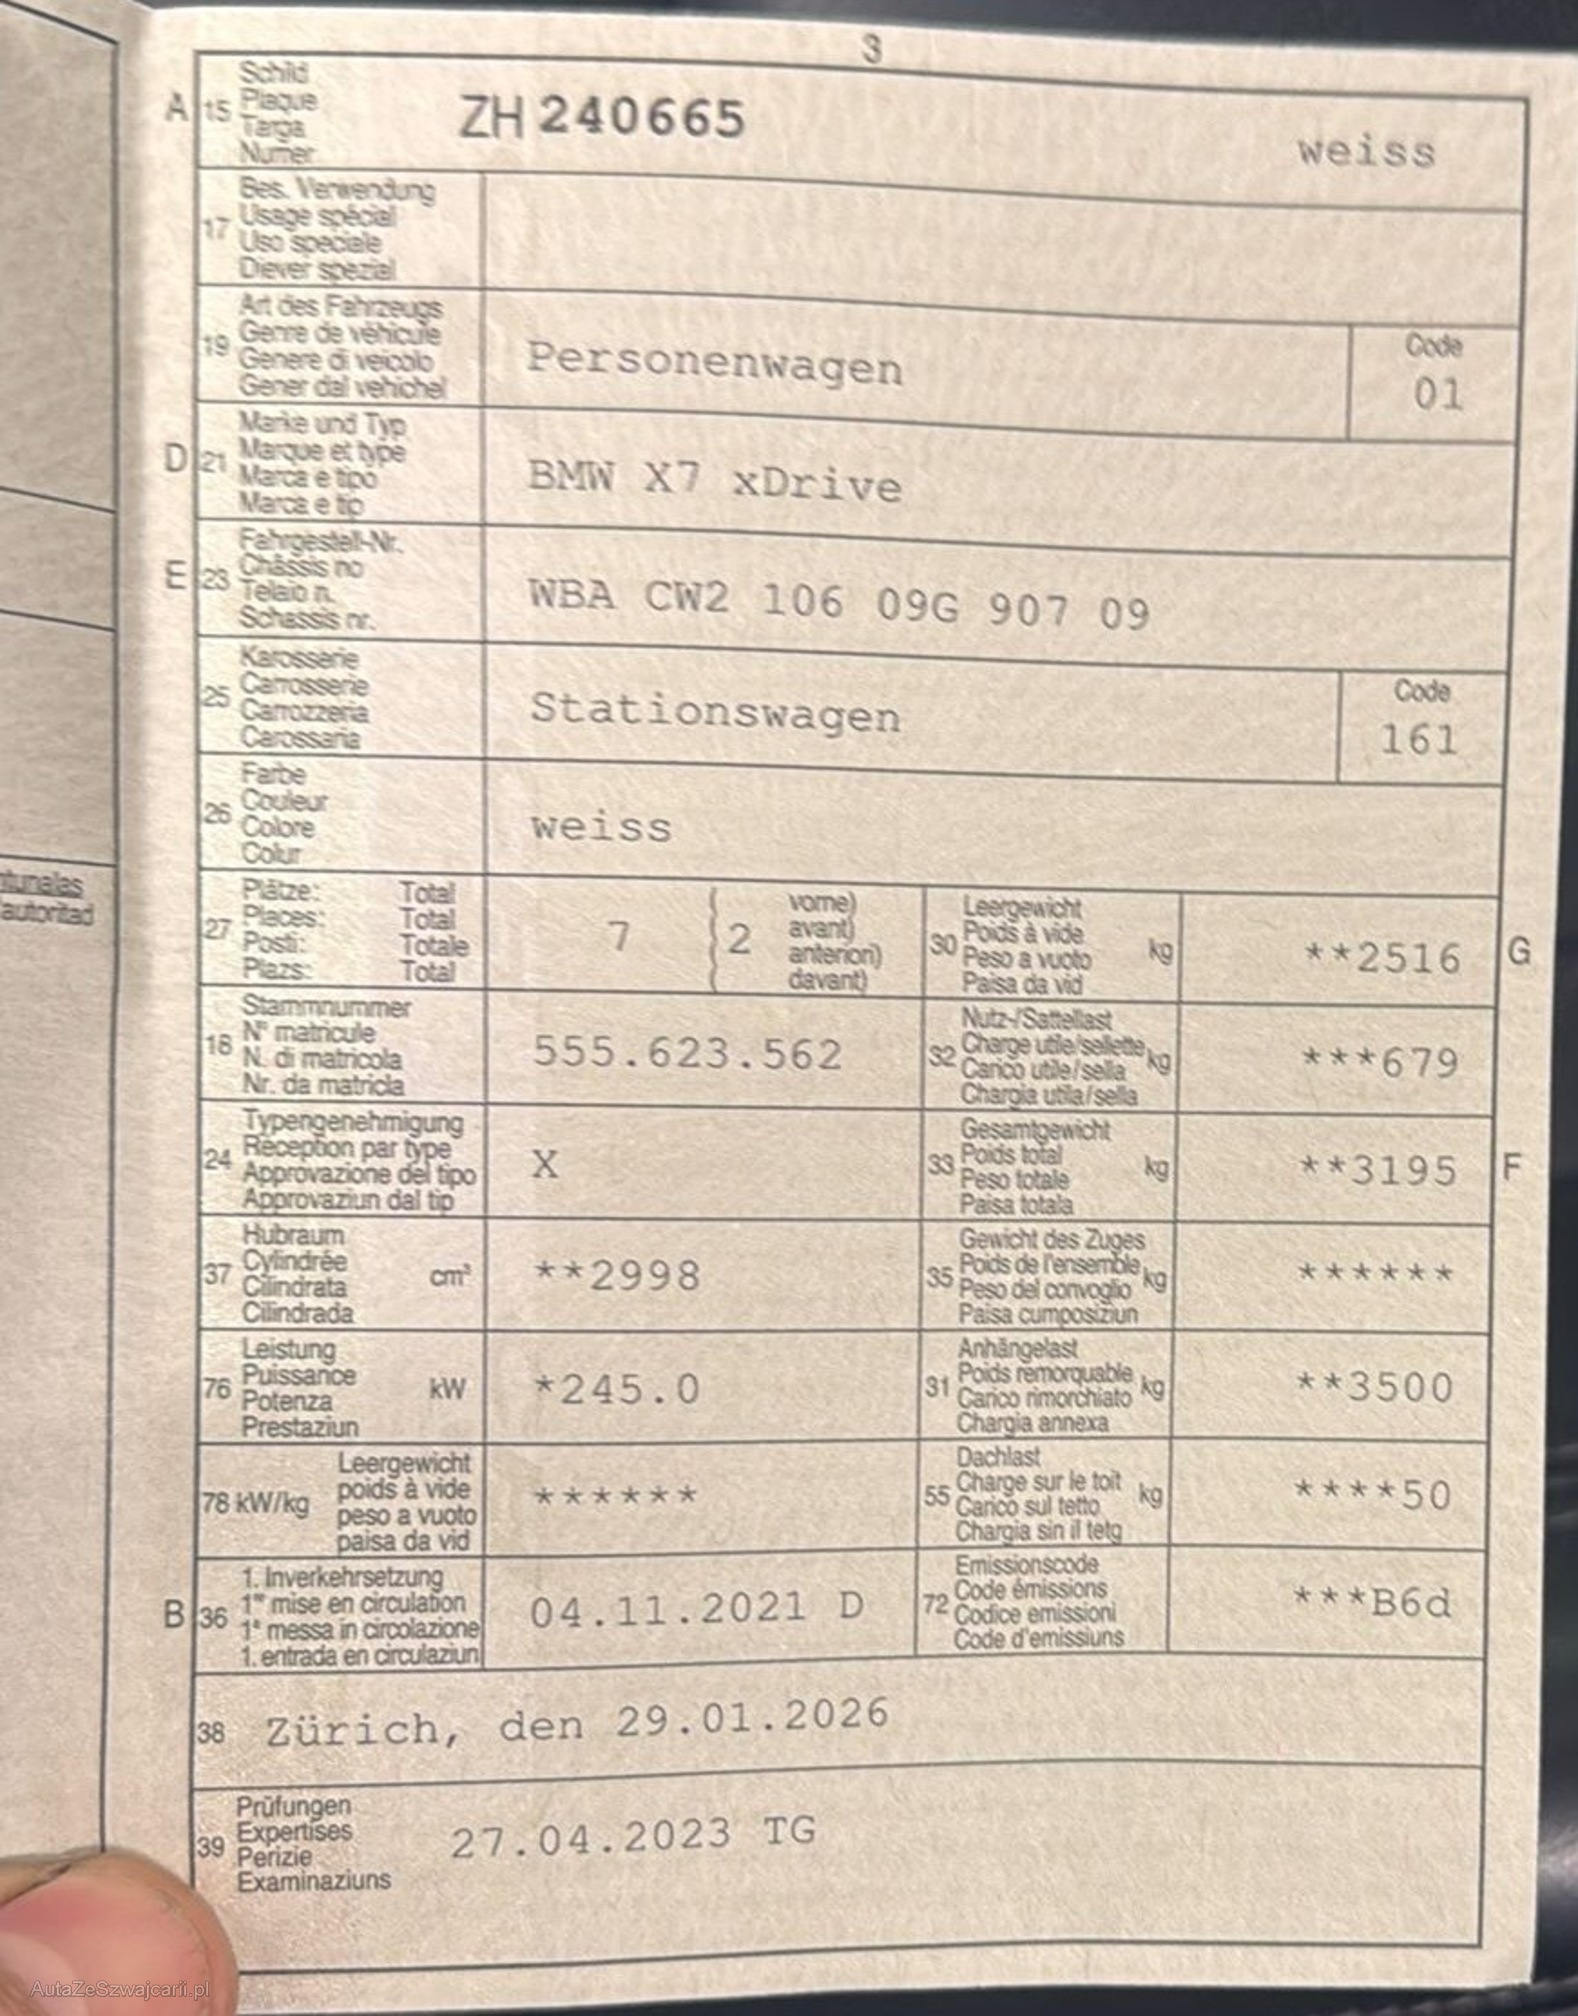 3
A 15 Schild
Plaque
Targa
Numer
ZH 240665
weiss
17 Bes. Verwendung
Usage spécial
Uso speciale
Diever spezial
19 Art des Fahrzeugs
Genre de véhicule
Genere di veicolo
Gener dal vehichel
Personenwagen
Code
01
D 21 Marke und Typ
Marque et type
Marca e tipo
Marca e tip
BMW X7 xDrive
E 23 Fahrgestell-Nr.
Châssis no
Telaio n.
Schassis nr.
WBA CW2 106 09G 907 09
25 Karosserie
Carrosserie
Carrozzeria
Carossaria
Stationswagen
Code
161
26 Farbe
Couleur
Colore
Colur
weiss
27 Plätze: Total
Places: Total
Posti: Totale
Plazs: Total
7 { 2
vorne)
avant)
anteriori)
davant)
30 Leergewicht
Poids à vide
Peso a vuoto
Paisa da vid
kg
**2516
G
18 Stammnummer
N° matricule
N. di matricola
Nr. da matricla
555.623.562
32 Nutz-/Sattellast
Charge utile/sellette
Carico utile/sella
Chargia utila/sella
kg
***679
24 Typengenehmigung
Réception par type
Approvazione del tipo
Approvaziun dal tip
X
33 Gesamtgewicht
Poids total
Peso totale
Paisa totala
kg
**3195
F
37 Hubraum
Cylindrée
Cilindrata
Cilindrada
cm³
**2998
35 Gewicht des Zuges
Poids de l'ensemble
Peso del convoglio
Paisa cumposiziun
kg
******
76 Leistung
Puissance
Potenza
Prestaziun
kW
*245.0
31 Anhängelast
Poids remorquable
Carico rimorchiato
Chargia annexa
kg
**3500
78 kW/kg
Leergewicht
poids à vide
peso a vuoto
paisa da vid
******
55 Dachlast
Charge sur le toit
Carico sul tetto
Chargia sin il tetg
kg
****50
B 36 1. Inverkehrsetzung
1re mise en circulation
1a messa in circolazione
1. entrada en circulaziun
04.11.2021 D
72 Emissionscode
Code émissions
Codice emissioni
Code d'emissiuns
***B6d
38 Zürich, den 29.01.2026
39 Prüfungen
Expertises
Perizie
Examinaziuns
27.04.2023 TG
autoritad
AutaZeSzwajcarii.pl